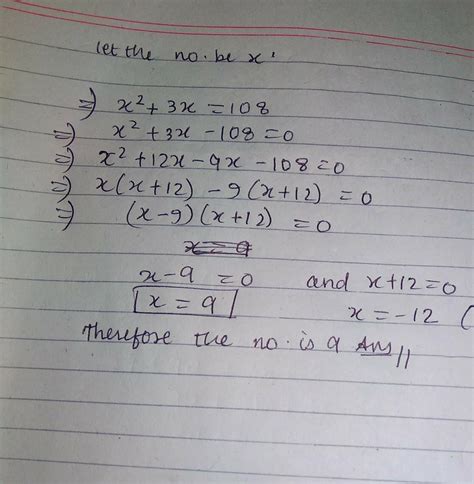 let the no. be x'
⇒ x² + 3x = 108
⇒ x² + 3x - 108 = 0
⇒ x² + 12x - 9x - 108 = 0
⇒ x(x+12) - 9(x+12) = 0
⇒ (x-9)(x+12) = 0
x = 9
x - 9 = 0 and x+12 = 0
x = 9 x = -12 (
Therefore the no. is 9 Ans//